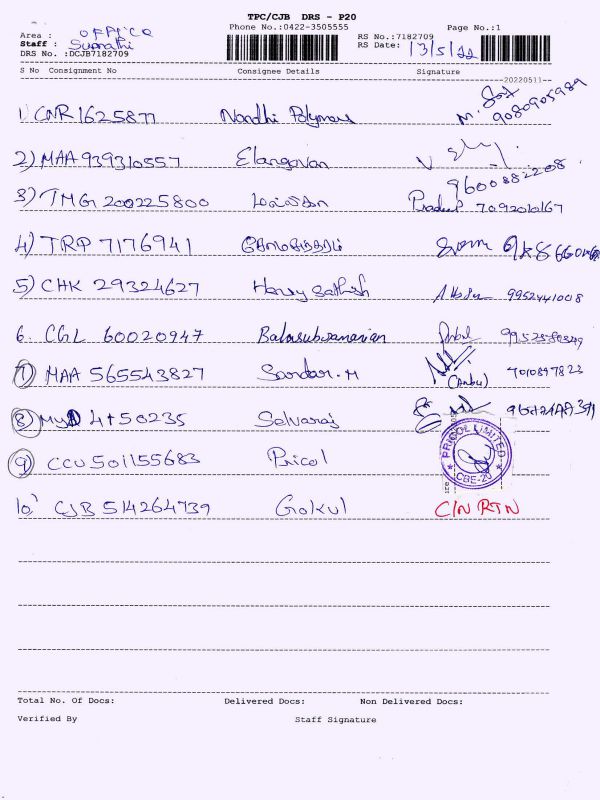 TPC/CJB DRS - P20
Phone No.:0422-3505555 Page No.:1
Area : OFFICE RS No.:7182709
Staff : Suprathi RS Date: 13/5/22
DRS No. :DCJB7182709
S No Consignment No Consignee Details Signature
20220511
1) CNR1625877 Nandhi Polymers M. 9080905989
2) MAA 939310557 Elangovan 9600882208
3) TMG 200225800 7092010167
4) TRP 7176941
5) CHK 29324627 Harry Sathish 9952441008
6. CGL 60020947 Balasubramanian
7) MAA 565543827 Sundar.M (Anbu) 7010897822
8) 4450235 Selvaraj
9) CCU 501155683 Pricol PRICOL LIMITED CBE-20
10) CJB 514264739 Gokul C/N RTN
Total No. Of Docs: Delivered Docs: Non Delivered Docs:
Verified By Staff Signature